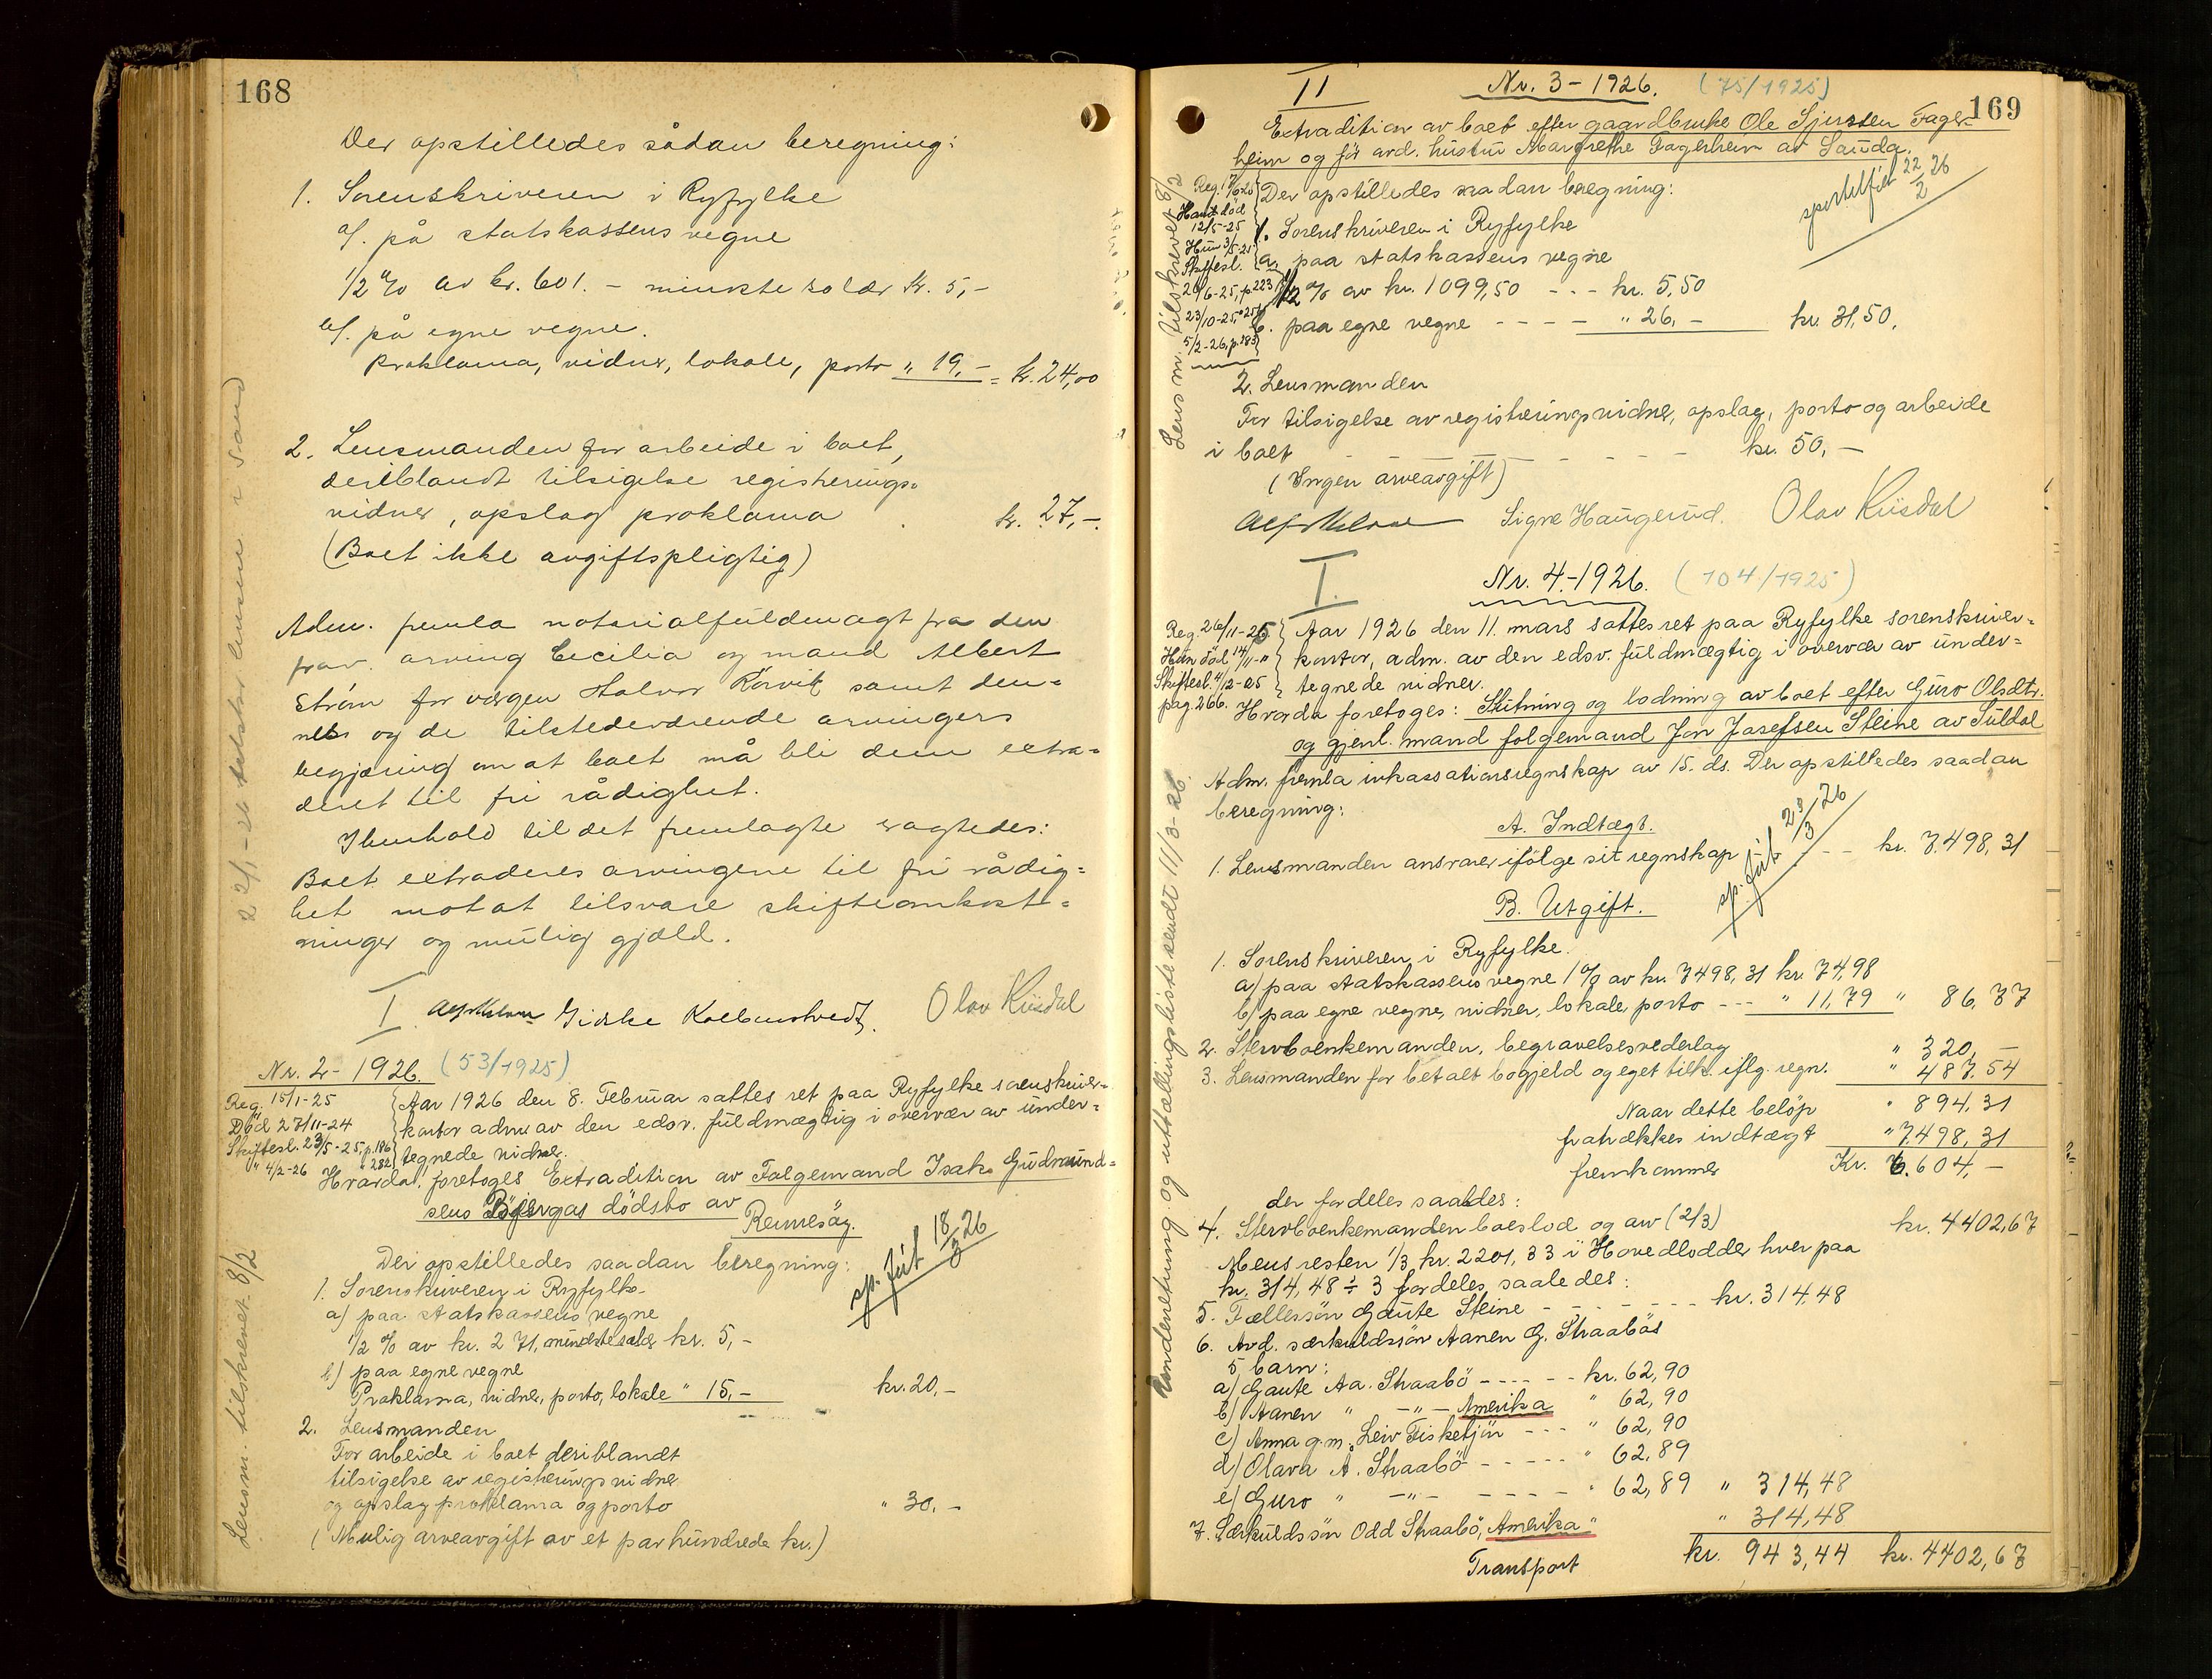 168
Der opstilledes sådan beregning:
1. Sorenskriveren i Ryfylke
a/. på statskassens vegne
1/2 % av kr. 601. – minkste salær kr. 5,-
b/. på egne vegne.
Proklama, vidner, lokale, porto " 19,- = kr. 24,00
2. Lensmanden for arbeide i boet,
deriblandt tilsigelse registrerings-
vidner, opslag proklama kr. 27,-.
(Boet ikke avgiftspligtig)
Adm. fremla notarialfuldmagt fra den
frav. arving Cecilia og mand Albert
Strøm for vergen Halvor Rörvik samt den-
nes og de tilstedeværende arvingers
begjæring om at boet må bli dem extra-
deret til fri rådighet.
I henhold til det fremlagte vagtedes:
Boet extraderes arvingene til fri rådig-
het mot at tilsvare skifteomkost-
ninger og mulig gjæld.
I Giske Kolbenstvedt. Olav Riisdal
Nr. 2 – 1926. (53/1925)
Reg. 15/1-25
Död 27/11-24
Skiftesl. 23/5-25, p. 186
" 4/2-26 " 282
Aar 1926 den 8. Februar sattes ret paa Ryfylke sorenskriver-
kontor adm. av den edsv. fuldmægtig i overvær av under-
tegnede vidner.
Hvorda foretoges Extradition av Folgemand Isak Gudmund-
sens Bjergas dödsbo av
Rennesöy.
sp. ført 18/3 26
Der opstilledes saadan beregning:
1. Sorenskriveren i Ryfylke
a) paa statskassens vegne
1/2 % av kr. 271, mindste salær kr. 5,-
b) paa egne vegne
Proklama, vidner, porto, lokale " 15,- kr. 20,-
2. Lensmanden
For arbeide i boet deriblandt
tilsigelse av registreringsvidner
og opslag proklama og porto " 30.-
(Mulig arveavgift av et par hundrede kr.)
Lensm. tilskrevet 8/2
169
II Nr. 3 – 1926. (75/1925)
Extradition av boet efter gaardbruke Ole Sjursen Fager-
heim og før avd. hustru Margrethe Fagerheim av Sauda.
Han död
12/5-25
Hun 3/5-21
Skiftesl.
20/6-25, p. 223
23/10-25, " 257
5/2-26, p. 283
Der opstilledes saadan beregning:
sportelført 22/2 26
1. Sorenskriveren i Ryfylke
a. paa statskassens vegne
1/2 % av kr. 1099,50 - - - kr. 5,50
b. paa egne vegne - - - - " 26,- kr. 31,50.
2. Lensmanden
For tilsigelse av registreringsvidner, opslag, porto og arbeide
i boet - - - - - - kr. 50,-
(Ingen arveavgift)
Signe Haugerud. Olav Riisdal
Lensm. tilskrevet 8/2
I. Nr. 4.-1926. (104/1925)
Reg. 26/11-25
Hun död 14/11-"
Skiftesl. 4/12-25
pag. 266.
Aar 1926 den 11. mars sattes ret paa Ryfylke sorenskriver-
kontor, adm. av den edsv. fuldmægtig i overvær av under-
tegnede vidner.
Hvorda foretoges: Slutning og lodning av boet efter Guro Olsdtr.
og gjenl. mand folgemand Jon Josefsen Steine av Suldal
Adm. fremla inkassationsregnskap av 15. ds. Der opstilledes saadan
beregning:
A. Indtægt.
1. Lensmanden ansvarer ifölge sit regnskap - - kr. 7.498,31
sp. ført 23/3 26
B. Utgift.
1. Sorenskriveren i Ryfylke.
a) paa statskassens vegne 1 % av kr. 7498,31 kr. 74,98
b) paa egne vegne, vidner, lokale, porto --- " 11,79 " 86,77
2. Stervboenkemanden, begravelsesvederlag " 320,-
3. Lensmanden for betalt bogjeld og eget tilk. iflg. regn. " 487.54
Naar dette belöp " 894,31
fratrækkes indtægt " 7.498,31
fremkommer Kr. 6.604,-
der fordeles saaledes:
4. Stervboenkemanden boeslod og arv (2/3) kr. 4402,67
Mens resten 1/3 kr. 2201,33 i 7 Hovedlodder hver paa
kr. 314,48 ÷ 3 fordeles saaledes:
5. Fællessön Gaute Steine - - - - - - kr. 314,48
6. Avd. særkuldssön Aanen G. Straabös
5 barn:
a) Gaute Aa. Straabö - - - - - kr. 62,90
b) Aanen " -"- Amerika " 62,90
c) Anna g.m. Leiv Fisketjön - - - " 62,90
d) Olava A. Straabö - - - - - " 62,89
e) Guro " -"- - - - - " 62,89 " 314,48
7. Særkuldssön Odd Straabö, Amerika " " 314,48
Transport kr. 943,44 kr. 4402,67
Randenseltning og uttællingsliste sendt 11/3-26.